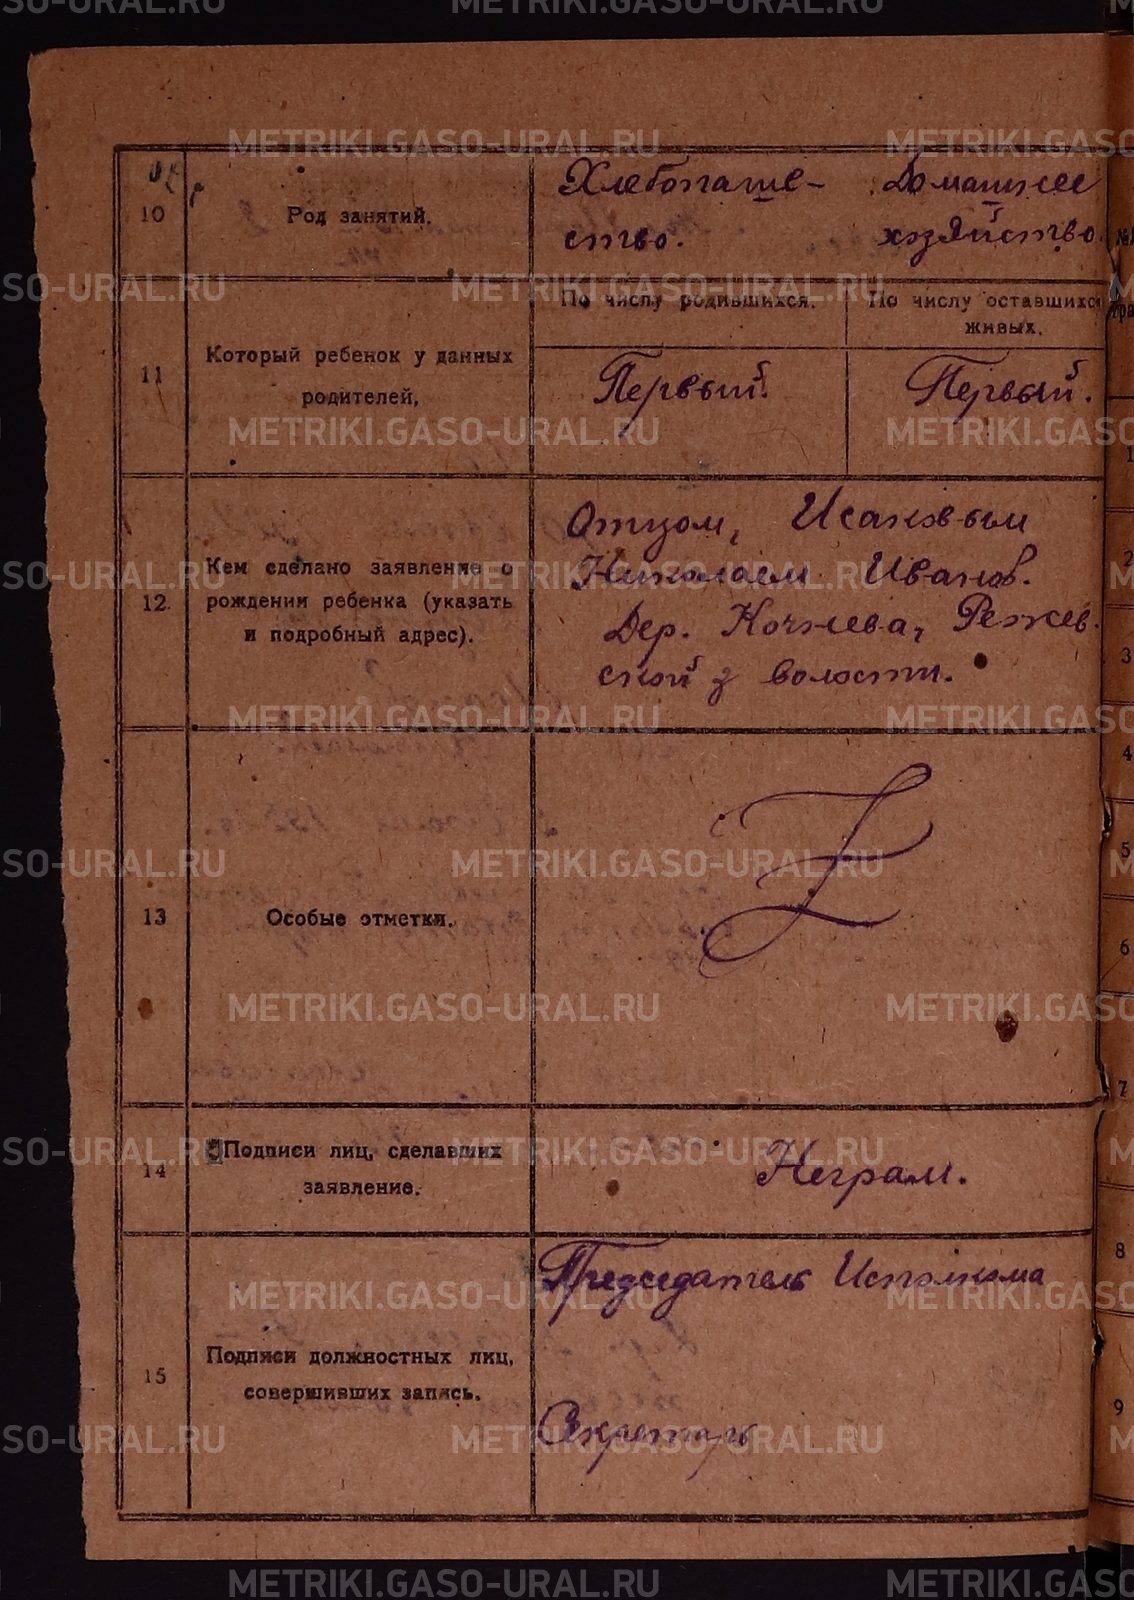 METRIKI.GASO-URAL.RU
10
Род занятий.
Хлебопаше-
ство.
Домашнее
хозяйство.
11
Который ребенок у данных
родителей,
По числу родившихся.
По числу оставшихся
живых.
Первый.
Первый.
12
Кем сделано заявление о
рождении ребенка (указать
и подробный адрес).
Отцом, Исаковым
Николаем Иванов.
Дер. Кочнева, Режев-
ской волости.
13
Особые отметки.
Z
14
Подписи лиц, сделавших
заявление.
Неграм.
15
Подписи должностных лиц,
совершивших запись.
Председатель Исполкома
Секретарь
1
2
3
4
5
6
7
8
9